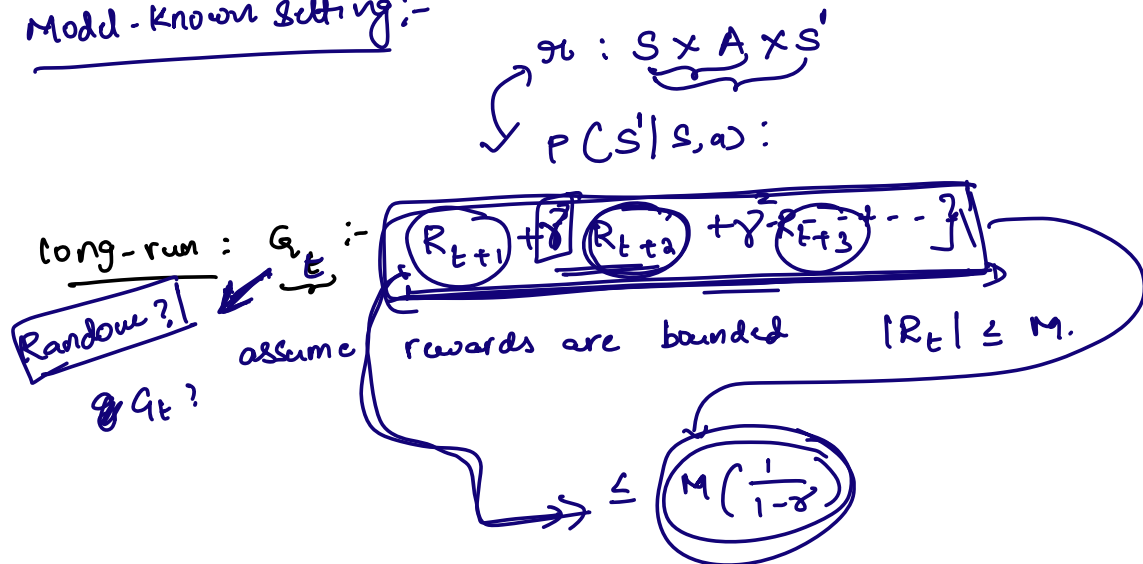 Model-Known Setting:-
r : S × A × S'
P(S'|s,a) :
long-run : G_t :- [R_{t+1} + γ R_{t+2} + γ² R_{t+3} + - - ]
Random?
assume rewards are bounded |R_t| ≤ M.
G_t ?
≤ M(1/(1-γ))